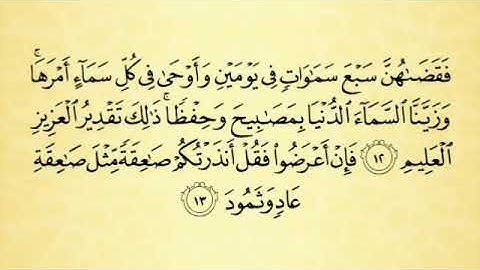 فَقَضَىٰهُنَّ سَبْعَ سَمَٰوَاتٍ فِى يَوْمَيْنِ وَأَوْحَىٰ فِى كُلِّ سَمَآءٍ أَمْرَهَا ۚ
وَزَيَّنَّا ٱلسَّمَآءَ ٱلدُّنْيَا بِمَصَٰبِيحَ وَحِفْظًا ۚ ذَٰلِكَ تَقْدِيرُ ٱلْعَزِيزِ
ٱلْعَلِيمِ ١٢ فَإِنْ أَعْرَضُوا۟ فَقُلْ أَنذَرْتُكُمْ صَٰعِقَةً مِّثْلَ صَٰعِقَةِ
عَادٍ وَثَمُودَ ١٣